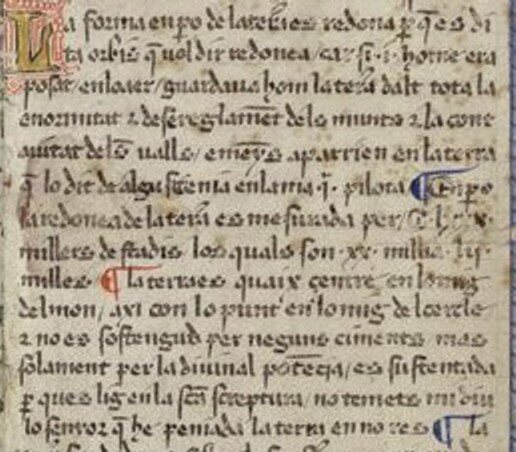 La forma en po de la terra es redona p q es di
ta orbis q vol dir redonea / car si ·i· home era
posat en loaer / guardava hom la terra dalt tota la
enormitat z desereglament dels munts z la conc
auitat dels valls / e menys aparrien en la terra
q lo dit de algu stenia en la ma ·i· pilota ¶ Enpo
la redonea de la terra es mesurada per
millers de stadis los quals son ·xx· millia ·lij·
milles ¶ la terra es quaix centre en lo mig
del mon / axi con lo punt en lo mig del cercle
z no es sostengud per neguns ciments mas
solament per la diuinal potecia / es sustentada
p que s lig en la scā screptura / no temets mi diu
lo senyor q he penjada la terra en no res ¶ la